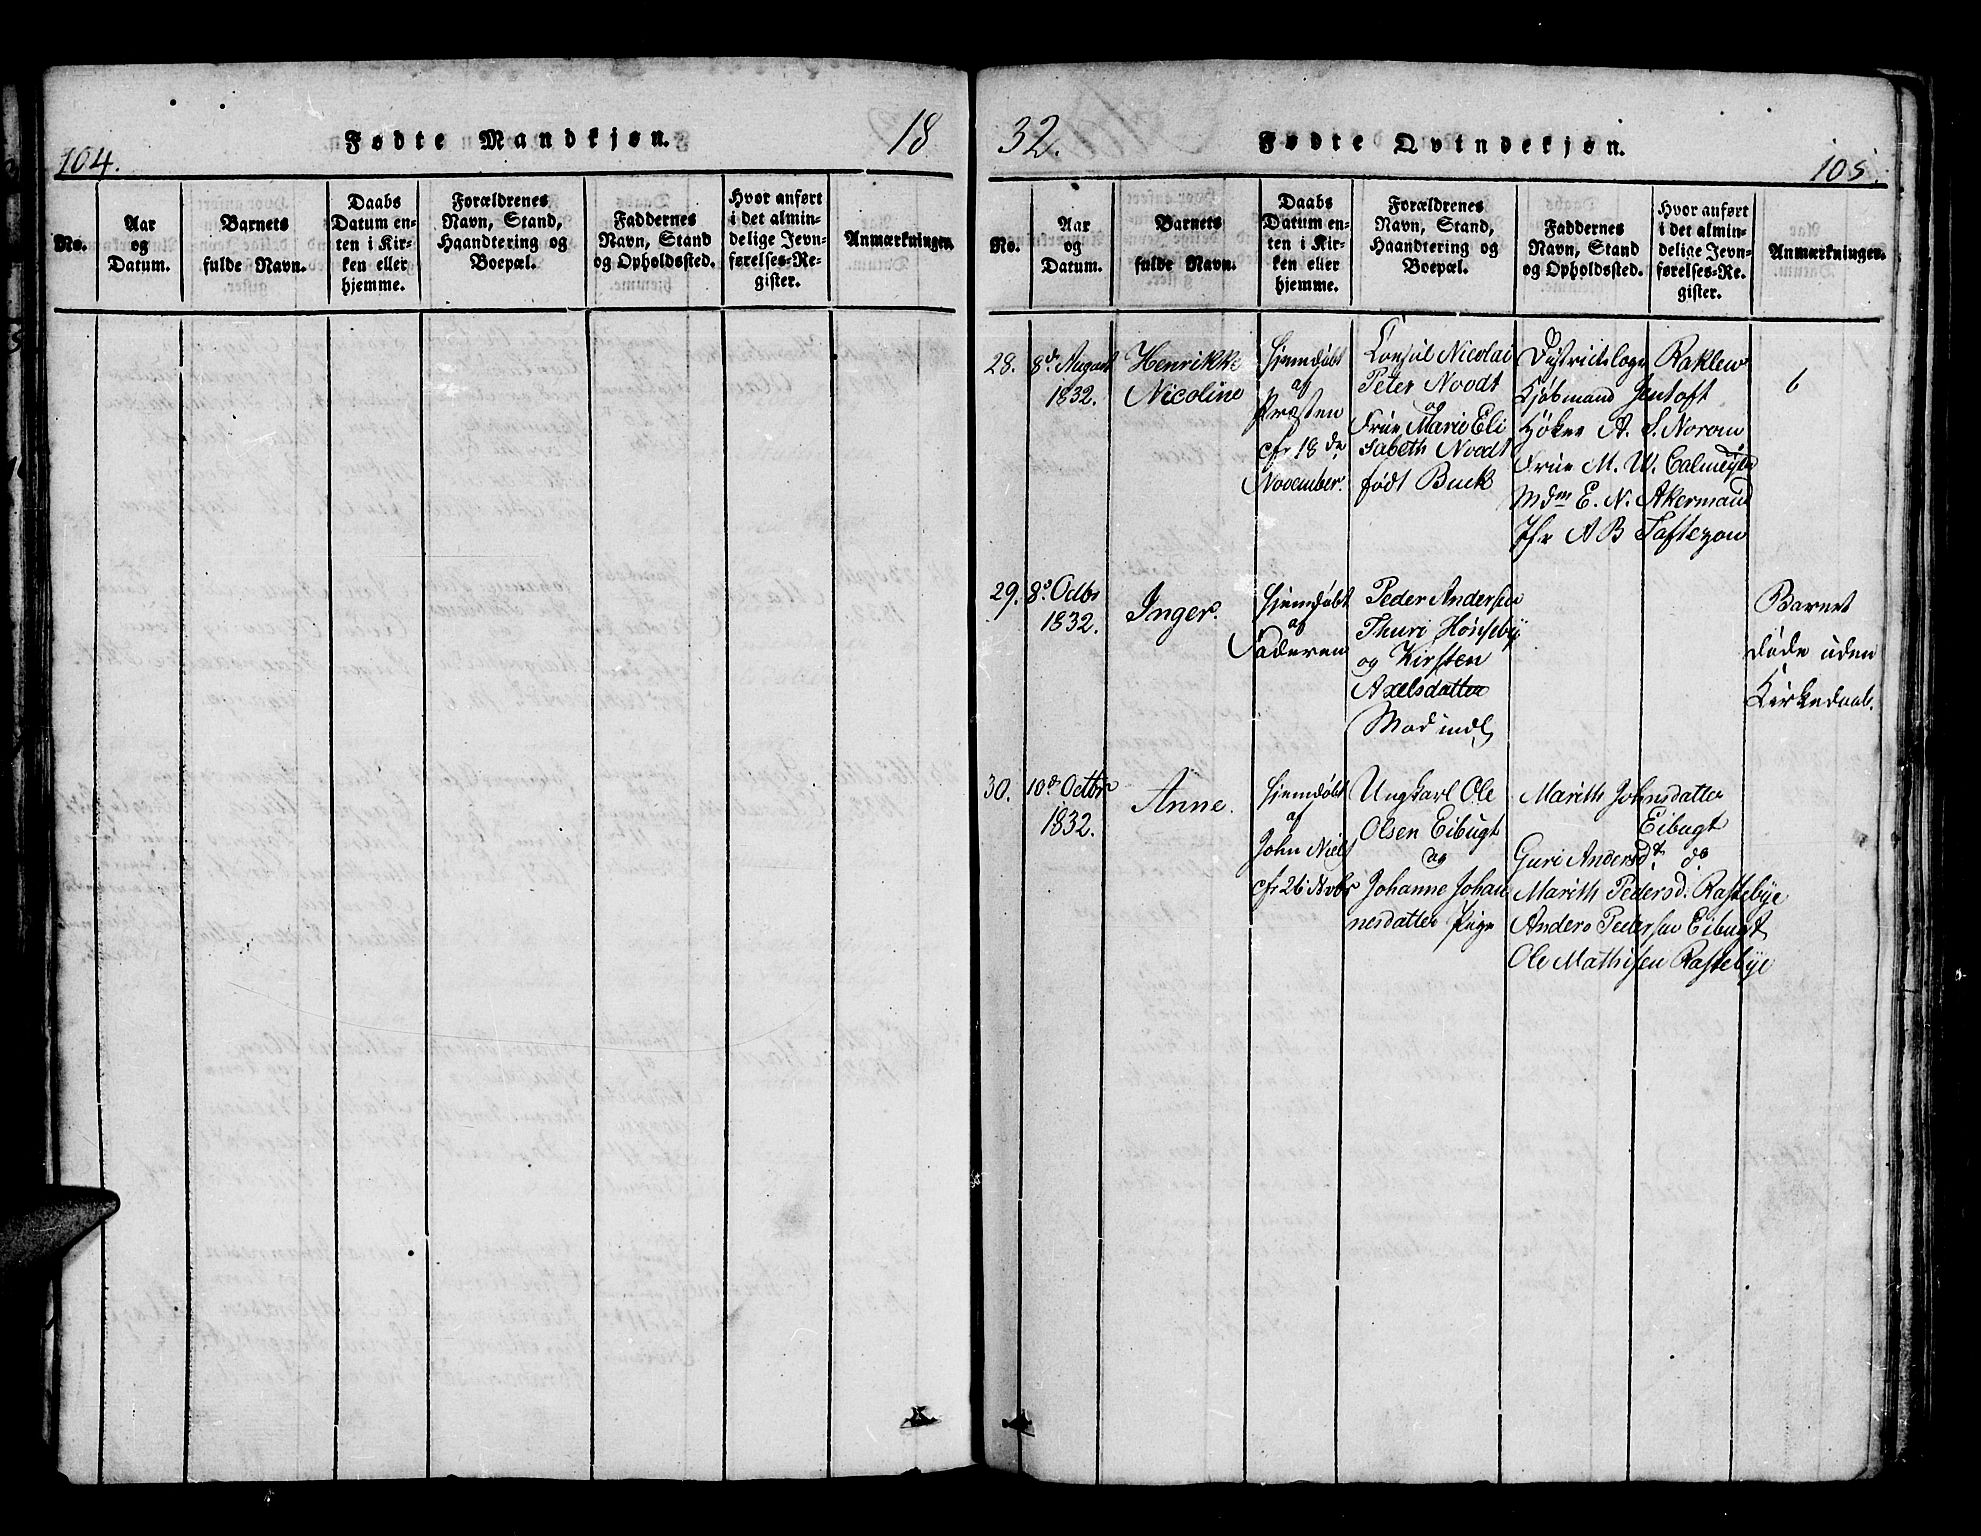 104.
Fødte Mandkjøn.
18
No.
Aar
og
Datum.
Barnets
fulde Navn.
Daabs
Datum en-
ten i Kir-
ken eller
hjemme.
Forældrenes
Navn, Stand,
Haandtering og
Boepæl.
Faddernes
Navn, Stand
og Opholdssted.
Hvor anført
i det almin-
delige Jevn-
førelses-Re-
gister.
Anmærkninger.
32.
Fødte Qvindekjøn.
105.
No.
Aar
og
Datum.
Barnets
fulde Navn.
Daabs
Datum en-
ten i Kir-
ken eller
hjemme.
Forældrenes
Navn, Stand,
Haandtering og
Boepæl.
Faddernes
Navn, Stand
og Opholdssted.
Hvor anført
i det almin-
delige Jevn-
førelses-Re-
gister.
Anmærkninger.
28.
8de August
1832.
Henrikke
Nicoline
Hjemdøbt
af
Præsten
cfr 18 de
November.
Consul Nicolai
Peter Noodt
og
Frue Marie Eli
sabeth Noodt
født Buck
Districtslæge Raklew
Kjøbmand Jentoft
Høker A. S. Norom
Frue M. W. Calmeyer
Mdm E. N. Akermand
Jfr A B Taftezon
6
29.
8de Octbr
1832.
Inger.
Hjemdøbt
af
Faderen
Peder Andersen
Thuri Hønsebÿ
og Kirsten
Axelsdatter
Barnet
døde uden
Kirkedaab.
30.
10de Octbr
1832.
Anne.
Hjemdøbt
af
John Niels
cfr 26 Nvbr
Ungkarl Ole
Olsen Eibugt
og
Johanne Johan
nesdatter Pige
Marith Johnsdatter
Eibugt
Guri Andersdt do
Marith Pedersd. Rastebÿe
Anders Pedersen Eibugt
Ole Mathisen Rastebÿe